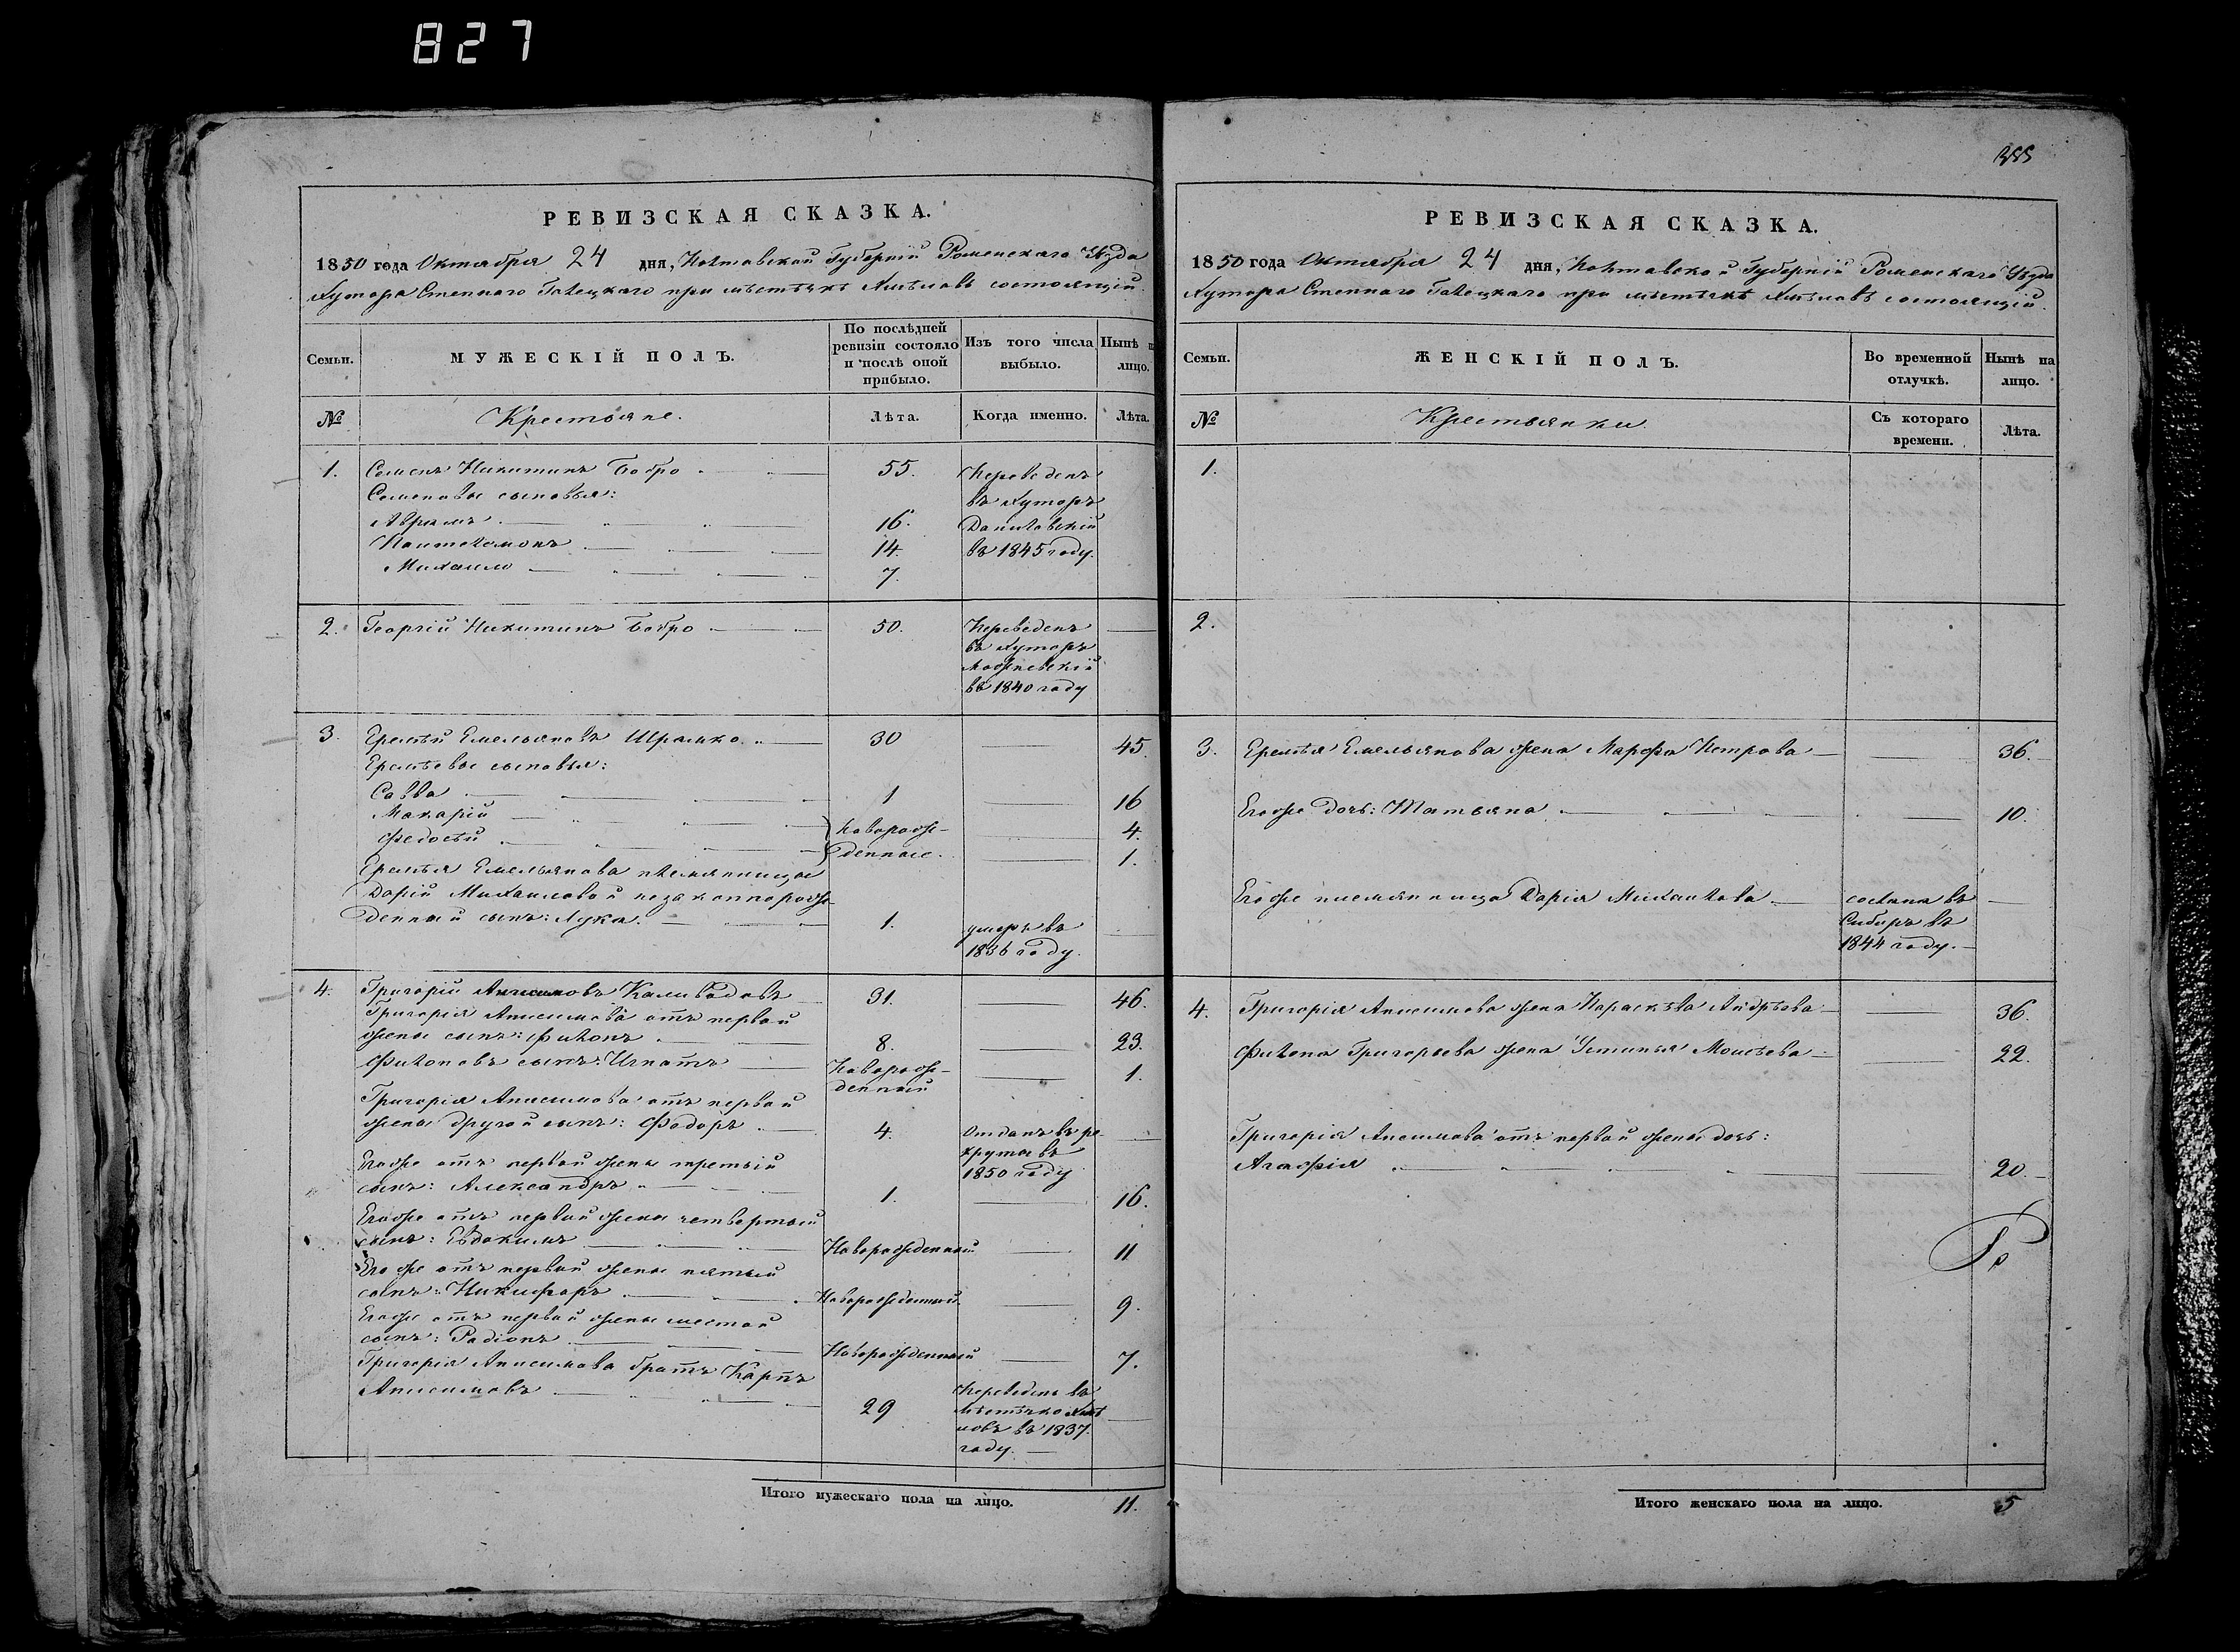 827
РЕВИЗСКАЯ СКАЗКА.
1850 года Октября 24 дня, Полтавской Губерніи Роменскаго Уезда
Хутора Степного Галецкаго при местечке состоящій.
Семьи.
МУЖЕСКІЙ ПОЛЪ.
По послѣдней ревизіи состояло и послѣ оной прибыло.
Изъ того числа выбыло.
Нынѣ на лицо.
№
Крестьяне.
Лѣта.
Когда именно.
Лѣта.
1. Семенъ Никитинъ Бобро 55. Переведенъ
Семеновы сыновья: въ Хуторъ
Аврамъ 16. Даниловскій
Пантелемонъ 14. въ 1845 году.
Михаило 7.
2. Георгій Никитинъ Бобро 50. Переведенъ
въ Хуторъ
въ 1840 году
3. Еремѣй Емельяновъ Шрамко 30 45.
Еремѣевы сыновья:
Савва 1 16
Макарій Новорож- 4.
Федосѣй денные. 1.
Еремѣя Емельянова племянницы
Дарій Михаиловой незаконнорож-
денный сынъ: Лука. 1. умеръ въ
1836 году.
4. Григорій Анисимовъ 31. 46.
Григорія Анисимова отъ первой
жены сынъ: Филонъ 8. 23.
Филоновъ сынъ: Игнатъ Новорож- 1.
денный
Григорія Анисимова отъ первой
жены другой сынъ: Федоръ 4. Отданъ въ ре-
круты въ
1850 году
Егоже отъ первой жены третій
сынъ: Александръ 1. 16.
Егоже отъ первой жены четвертый
сынъ: Евдокимъ Новорожденный 11
Егоже отъ первой жены пятый
сынъ: Никифоръ Новорожденный 9.
Егоже отъ первой жены шестой
сынъ: Радіонъ Новорожденный 7.
Григорія Анисимова братъ Карпъ
Анисимовъ 29 Переведенъ въ
въ 1837.
году.
Итого мужескаго пола на лицо. 11.
РЕВИЗСКАЯ СКАЗКА.
1850 года Октября 24 дня, Полтавской Губерніи Роменскаго Уезда
Хутора Степного Галецкаго при состоящій.
Семьи.
ЖЕНСКІЙ ПОЛЪ.
Во временной отлучкѣ.
Нынѣ на лицо.
№
Крестьянки
Съ котораго времени.
Лѣта.
1.
2.
3. Еремѣя Емельянова жена Марфа Петрова 36.
Егоже дочь: Татьяна 10.
Егоже племянница Дарія Михаилова сослана въ
Сибирь въ
1844 году.
4. Григорія Анисимова жена Параскѣва Андрѣева 36.
Филона Григорьева жена Устинья Моисѣева 22.
Григорія Анисимова отъ первой жены дочь:
Агафія 20.
Итого женскаго пола на лицо. 5